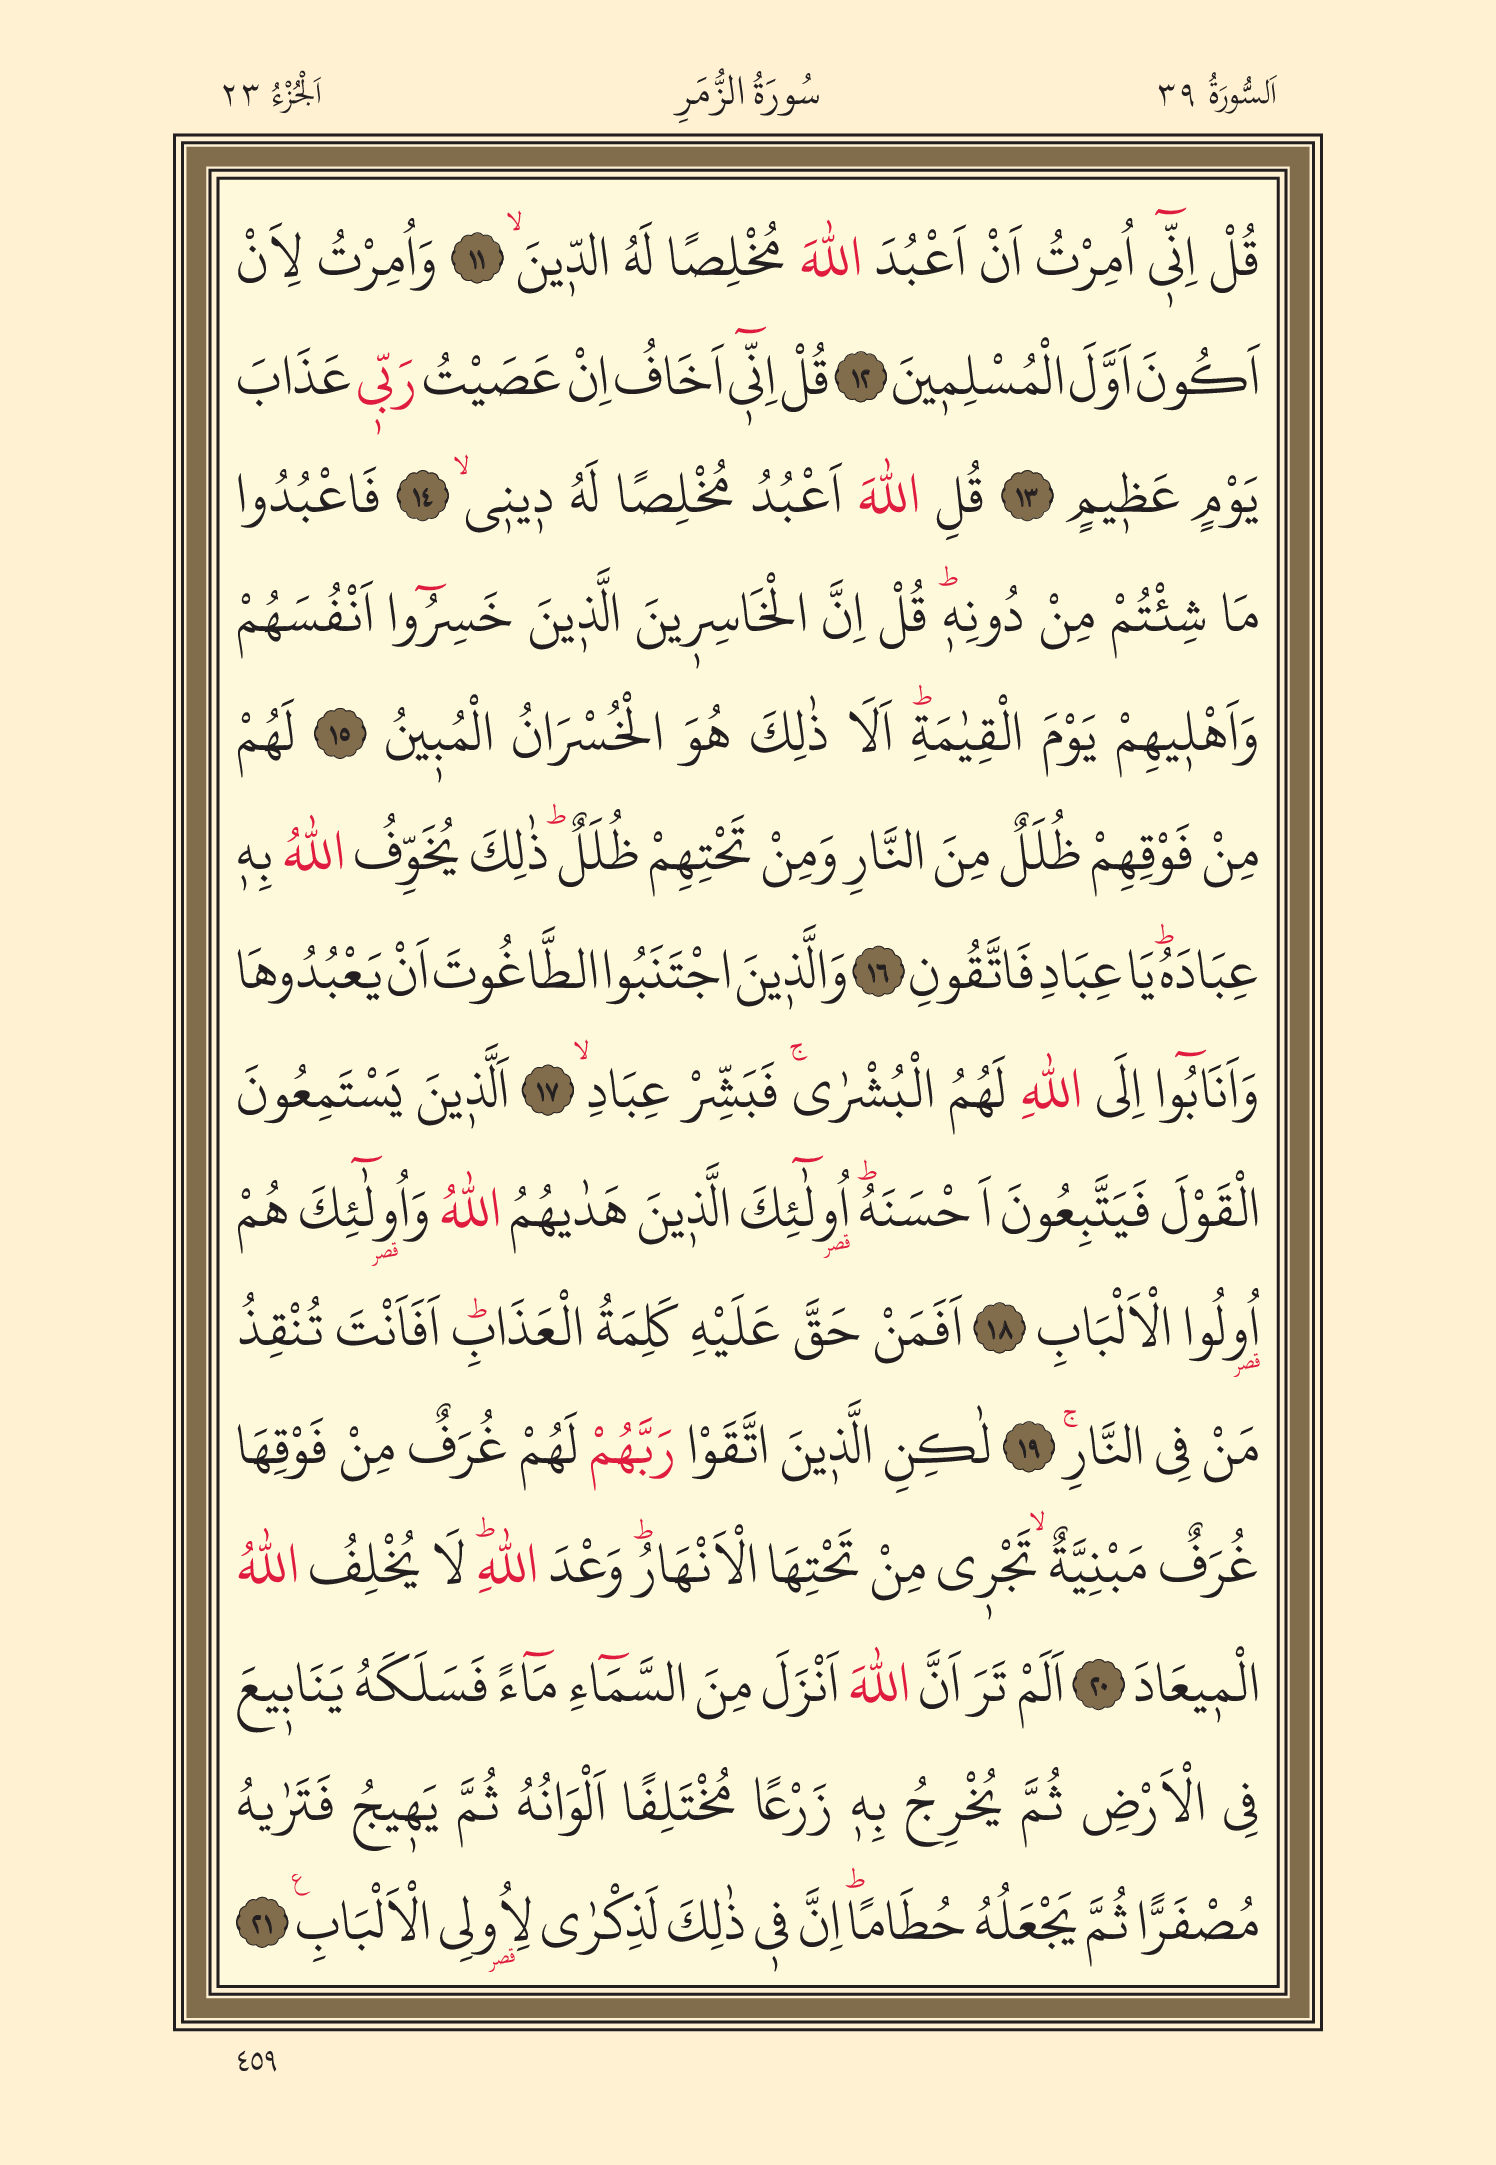 اَلسُّورَةُ ٣٩ سُورَةُ الزُّمَرِ اَلْجُزْءُ ٢٣
قُلْ اِنّ۪ٓي اُمِرْتُ اَنْ اَعْبُدَ اللّٰهَ مُخْلِصًا لَهُ الدّ۪ينَۙ ﴿١١﴾ وَاُمِرْتُ لِاَنْ
اَكُونَ اَوَّلَ الْمُسْلِم۪ينَ ﴿١٢﴾ قُلْ اِنّ۪ٓي اَخَافُ اِنْ عَصَيْتُ رَبّ۪ي عَذَابَ
يَوْمٍ عَظ۪يمٍ ﴿١٣﴾ قُلِ اللّٰهَ اَعْبُدُ مُخْلِصًا لَهُ د۪ين۪يۙ ﴿١٤﴾ فَاعْبُدُوا
مَا شِئْتُمْ مِنْ دُونِه۪ۜ قُلْ اِنَّ الْخَاسِر۪ينَ الَّذ۪ينَ خَسِرُٓوا اَنْفُسَهُمْ
وَاَهْل۪يهِمْ يَوْمَ الْقِيٰمَةِۜ اَلَا ذٰلِكَ هُوَ الْخُسْرَانُ الْمُب۪ينُ ﴿١٥﴾ لَهُمْ
مِنْ فَوْقِهِمْ ظُلَلٌ مِنَ النَّارِ وَمِنْ تَحْتِهِمْ ظُلَلٌۜ ذٰلِكَ يُخَوِّفُ اللّٰهُ بِه۪
عِبَادَهُۜ يَا عِبَادِ فَاتَّقُونِ ﴿١٦﴾ وَالَّذ۪ينَ اجْتَنَبُوا الطَّاغُوتَ اَنْ يَعْبُدُوهَا
وَاَنَابُٓوا اِلَى اللّٰهِ لَهُمُ الْبُشْرٰىۚ فَبَشِّرْ عِبَادِۙ ﴿١٧﴾ اَلَّذ۪ينَ يَسْتَمِعُونَ
الْقَوْلَ فَيَتَّبِعُونَ اَحْسَنَهُۜ اُو۬لٰٓئِكَ الَّذ۪ينَ هَدٰيهُمُ اللّٰهُ وَاُو۬لٰٓئِكَ هُمْ
اُو۬لُوا الْاَلْبَابِ ﴿١٨﴾ اَفَمَنْ حَقَّ عَلَيْهِ كَلِمَةُ الْعَذَابِۜ اَفَاَنْتَ تُنْقِذُ
مَنْ فِي النَّارِۚ ﴿١٩﴾ لٰكِنِ الَّذ۪ينَ اتَّقَوْا رَبَّهُمْ لَهُمْ غُرَفٌ مِنْ فَوْقِهَا
غُرَفٌ مَبْنِيَّةٌۙ تَجْر۪ي مِنْ تَحْتِهَا الْاَنْهَارُۜ وَعْدَ اللّٰهِۜ لَا يُخْلِفُ اللّٰهُ
الْم۪يعَادَ ﴿٢٠﴾ اَلَمْ تَرَ اَنَّ اللّٰهَ اَنْزَلَ مِنَ السَّمَٓاءِ مَٓاءً فَسَلَكَهُ يَنَاب۪يعَ
فِي الْاَرْضِ ثُمَّ يُخْرِجُ بِه۪ زَرْعًا مُخْتَلِفًا اَلْوَانُهُ ثُمَّ يَه۪يجُ فَتَرٰيهُ
مُصْفَرًّا ثُمَّ يَجْعَلُهُ حُطَامًاۜ اِنَّ ف۪ي ذٰلِكَ لَذِكْرٰى لِاُو۬لِي الْاَلْبَابِ۟ ﴿٢١﴾
٤٥٩